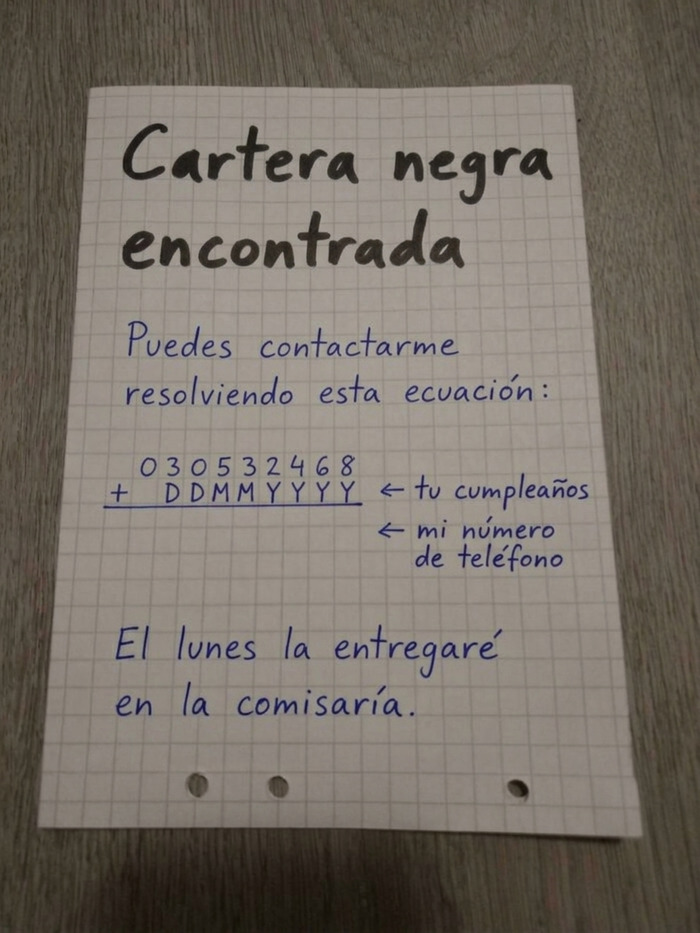 Cartera negra
encontrada
Puedes contactarme
resolviendo esta ecuación:
030532468
+ DDMMYYYY ← tu cumpleaños
← mi número
de teléfono
El lunes la entregaré
en la comisaría.